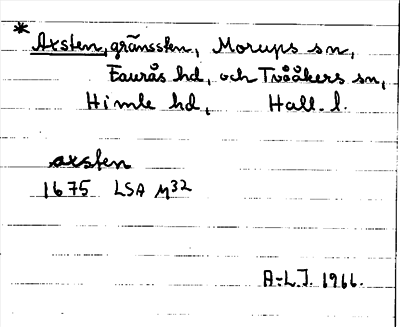 * Axsten, gränssten, Morups sn,
Faurås hd, och Tvååkers sn,
Himle hd, Hall. l.
axsten
1675 LSA M32
A-L.J. 1966.